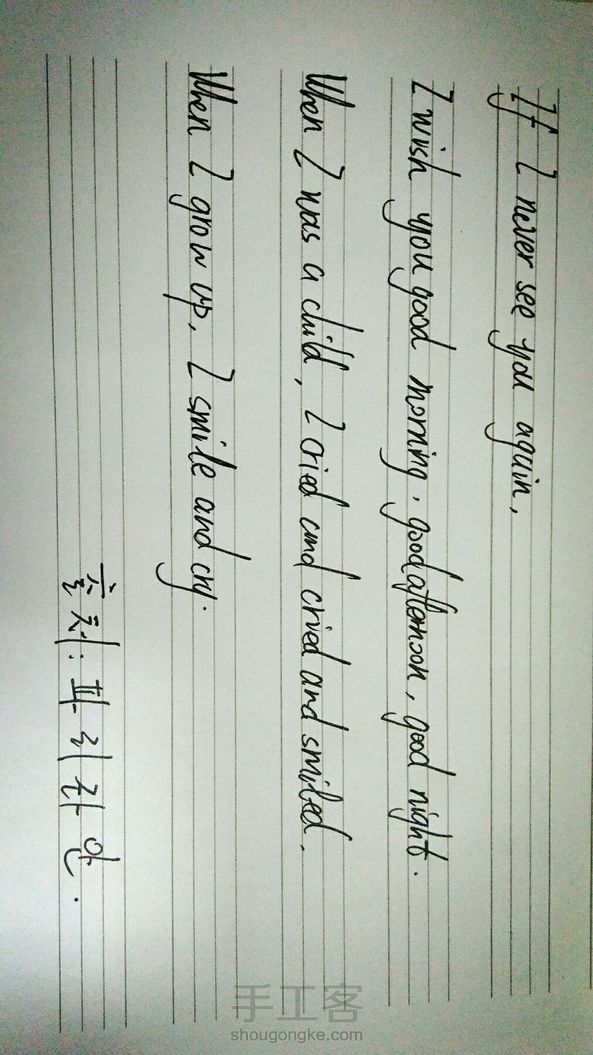 If I never see you again,
I wish you good morning, good afternoon, good night.
When I was a child, I cried and cried and smiled.
When I grow up, I smile and cry.
출처:
手工客
shougongke.com